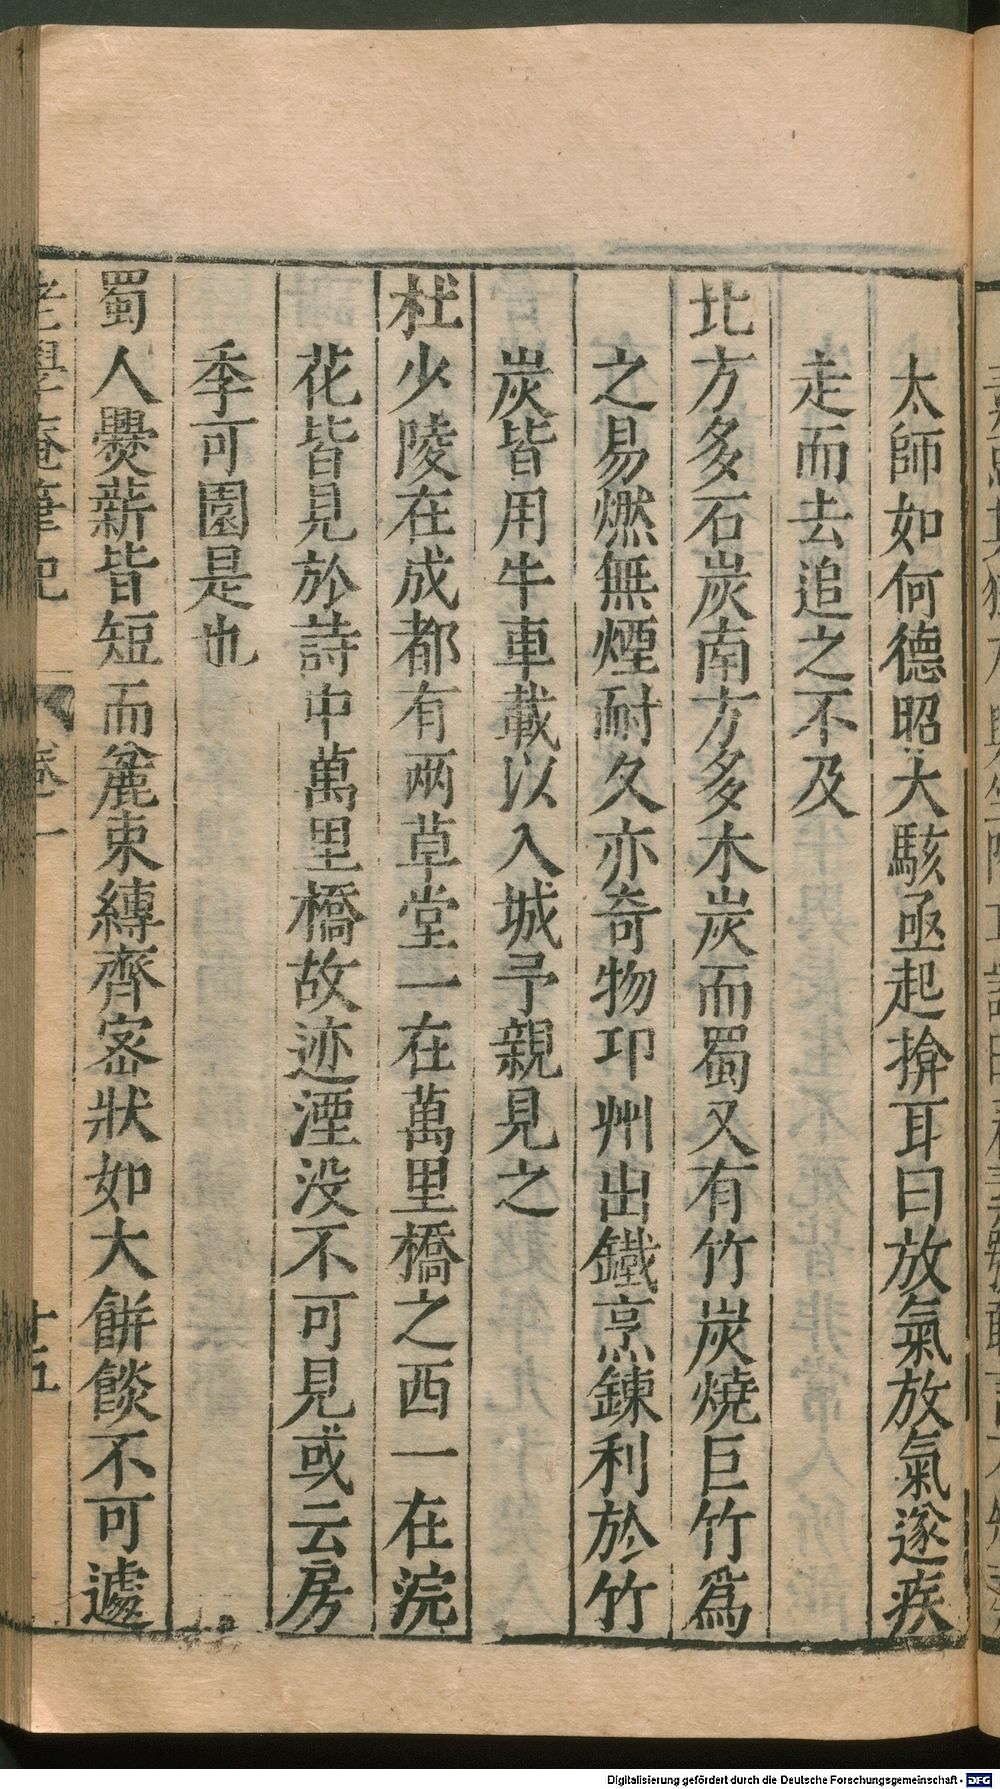 太師如何德昭大駭亟起揜耳曰放氣放氣遂疾
走而去追之不及
北方多石炭南方多木炭而蜀又有竹炭燒巨竹爲
之易燃無煙耐久亦奇物邛州出鐵烹鍊利於竹
炭皆用牛車載以入城予親見之
杜少陵在成都有兩草堂一在萬里橋之西一在浣
花皆見於詩中萬里橋故迹湮没不可見或云房
季可園是也
蜀人爨薪皆短而麄束縛齊密狀如大餅餤不可遽
老學庵筆記 卷一 十五
Digitalisierung gefördert durch die Deutsche Forschungsgemeinschaft - DFG